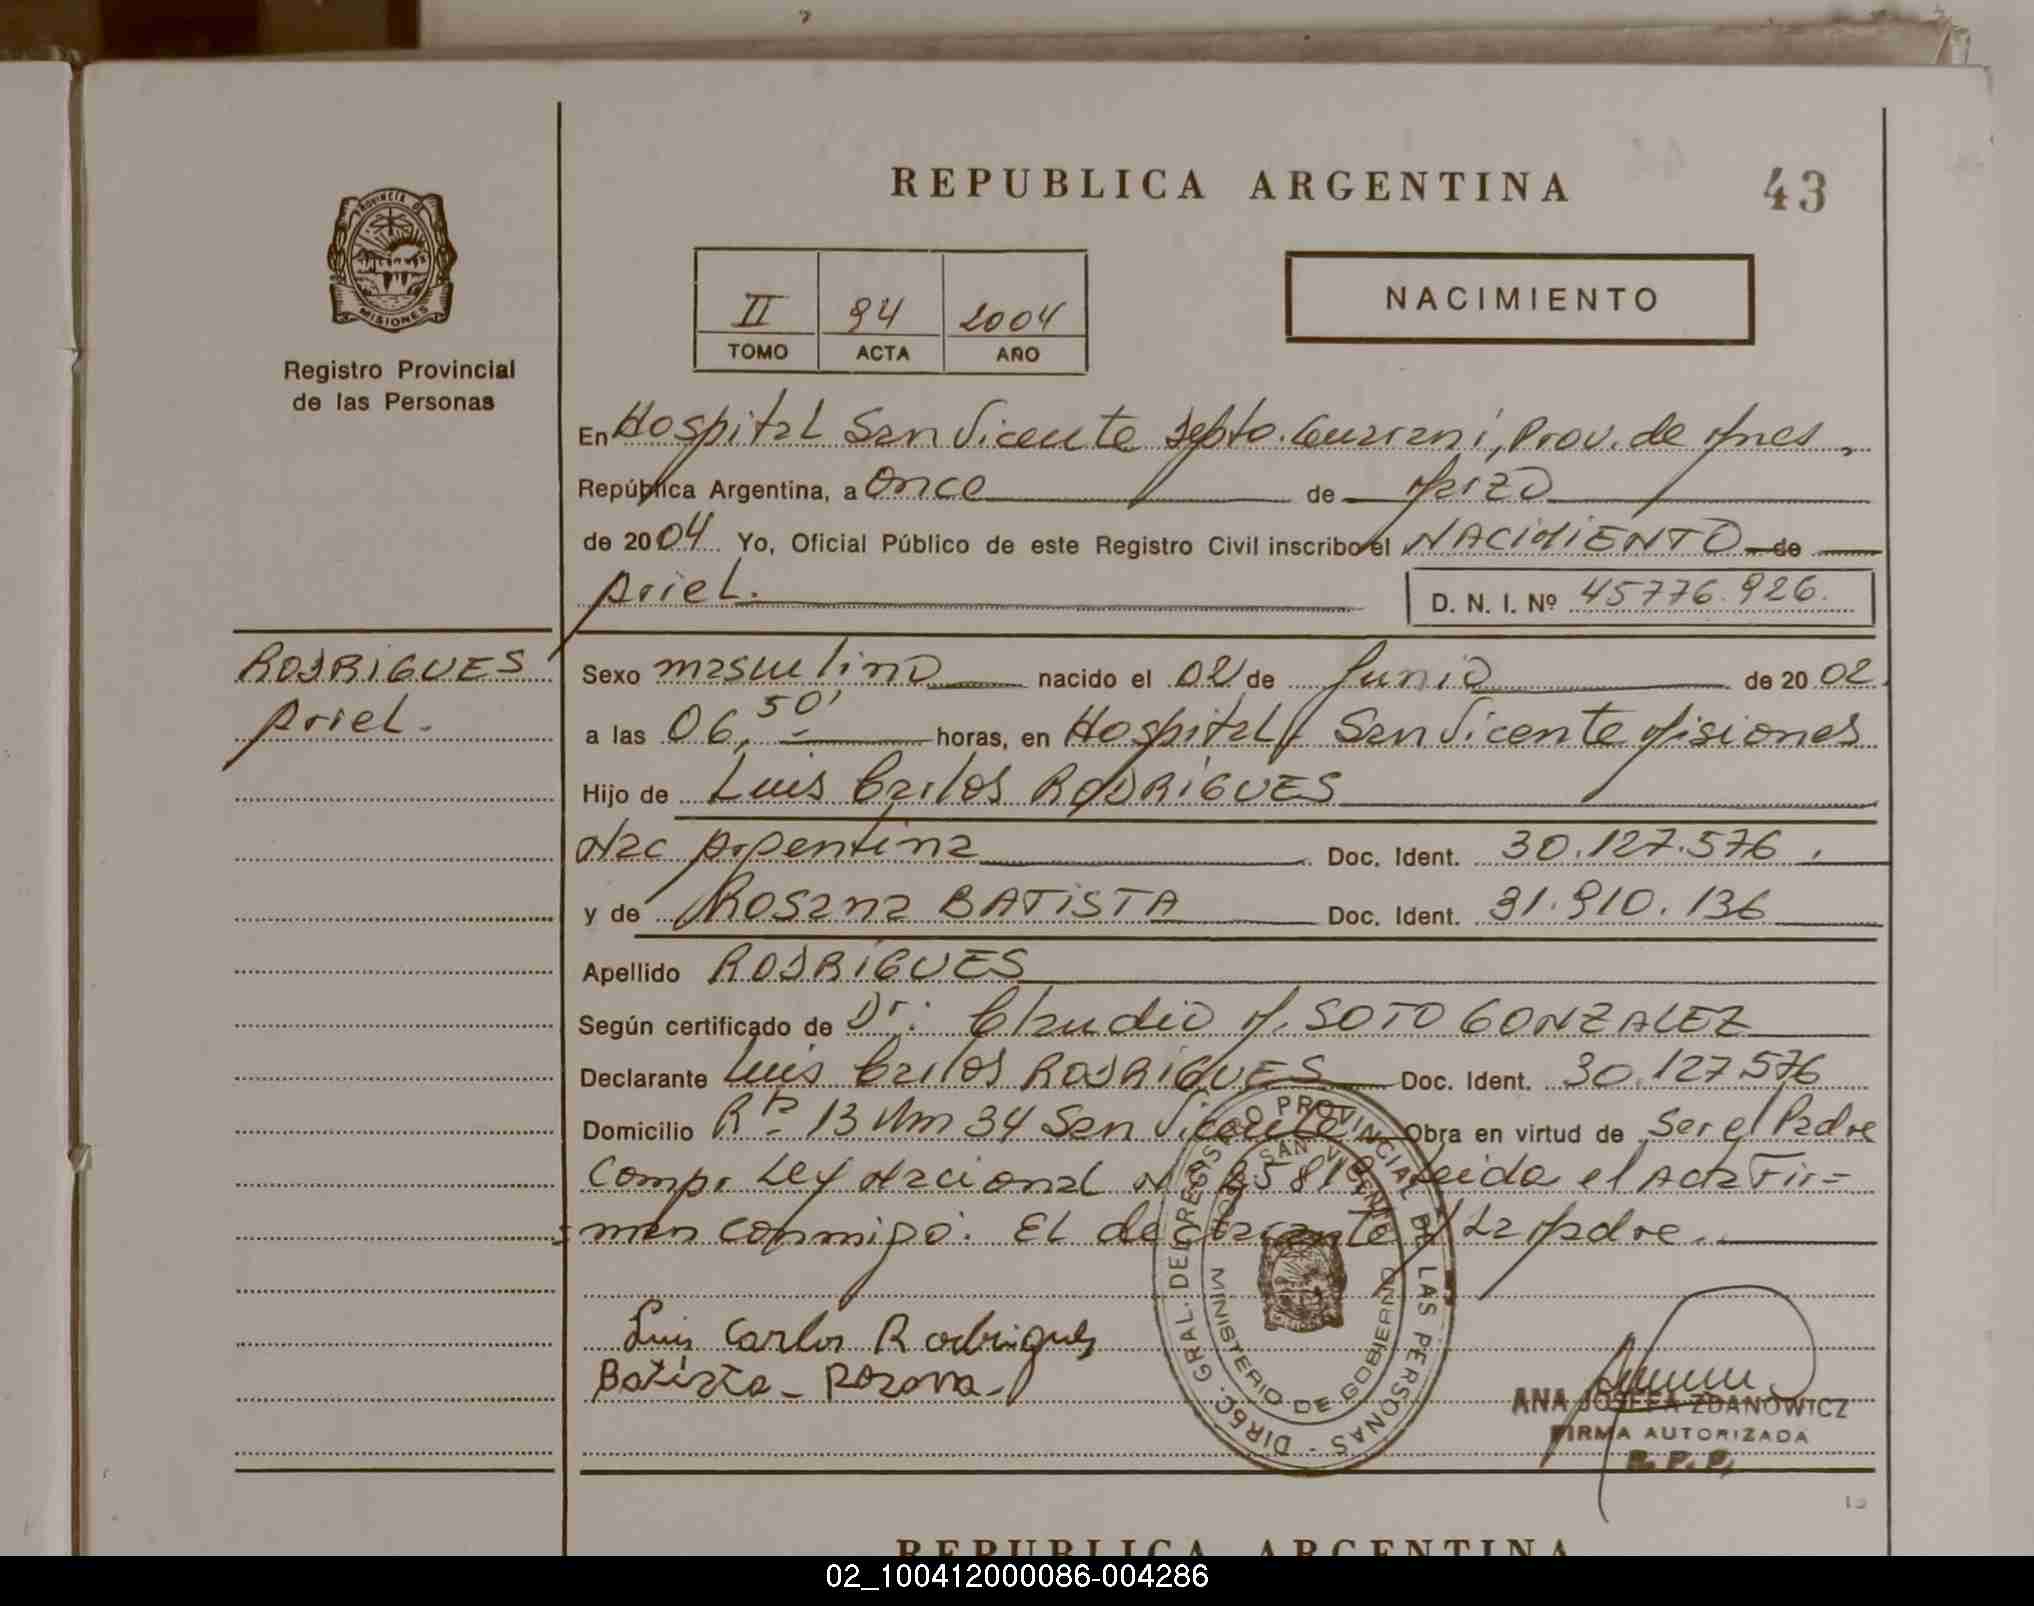 REPUBLICA ARGENTINA
43
PROVINCIA DE
MISIONES
Registro Provincial
de las Personas
II 94 2004
TOMO ACTA AÑO
NACIMIENTO
En Hospital San Vicente Depto. Guarani, Prov. de Mnes.
República Argentina, a Once de Marzo
de 2004 Yo, Oficial Público de este Registro Civil inscribo el NACIMIENTO de
Ariel.
D. N. I. Nº 45776.926.
RODRIGUES
Ariel.
Sexo masculino nacido el 02 de Junio de 2002.
a las 06,50' horas, en Hospital San Vicente Misiones
Hijo de Luis Carlos RODRIGUES
Nac Argentina Doc. Ident. 30.127.576.
y de Rosana BATISTA Doc. Ident. 31.910.136
Apellido RODRIGUES
Según certificado de Dr: Claudio M. SOTO GONZALEZ
Declarante Luis Carlos RODRIGUES Doc. Ident. 30.127.576
Domicilio Rta 13 Km 34 San Vicente Obra en virtud de Ser el Padre
Comp. Ley Nacional Nº 25819 Leida el Acta Fir=
=man conmigo: EL declarante y La Madre.
Luis Carlos Rodrigues
Batista - Rosana -
DIREC. GRAL. DEL REGISTRO PROVINCIAL DE LAS PERSONAS
SAN VICENTE
MINISTERIO DE GOBIERNO
ANA JOSEFA ZDANOWICZ
FIRMA AUTORIZADA
R. P. P.
REPUBLICA ARGENTINA
02_100412000086-004286